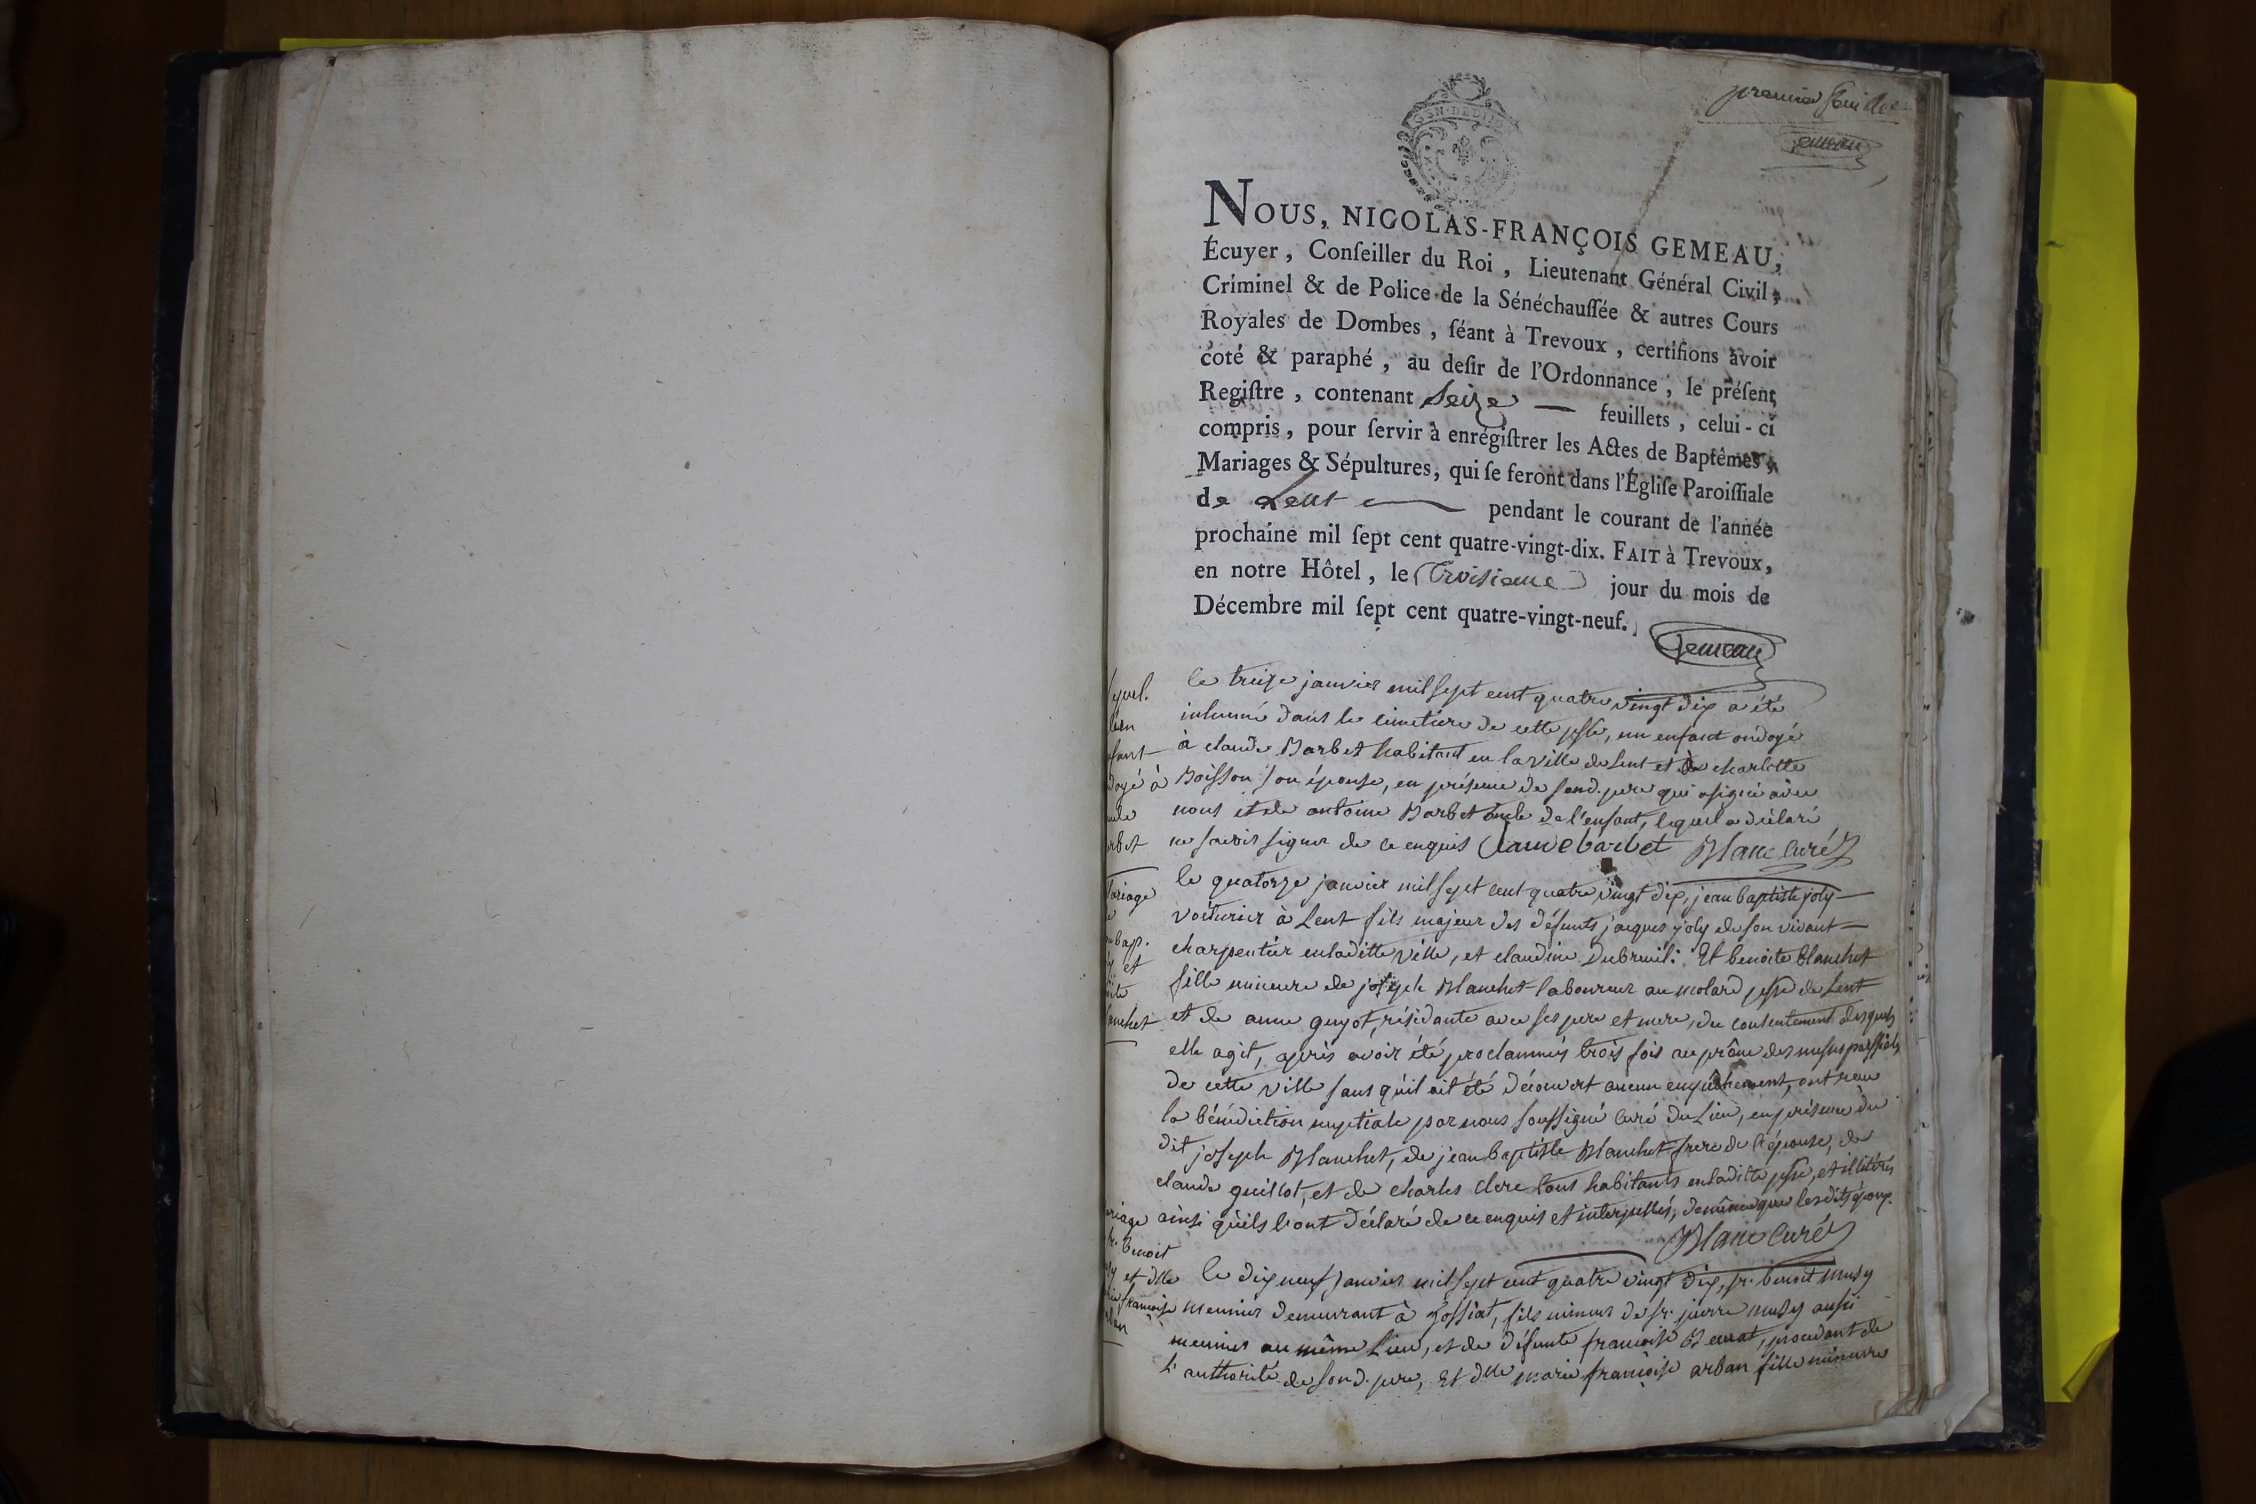 premier feuillet
Gemeau
GEN. DE DIJON
NOUS, NICOLAS-FRANÇOIS GEMEAU,
Écuyer, Conſeiller du Roi, Lieutenant Général Civil,
Criminel & de Police de la Sénéchauſſée & autres Cours
Royales de Dombes, ſéant à Trevoux, certifions avoir
coté & paraphé, au deſir de l'Ordonnance, le préſent
Regiſtre, contenant Seize — feuillets, celui-ci
compris, pour ſervir à enrégiſtrer les Actes de Baptêmes,
Mariages & Sépultures, qui ſe feront dans l'Égliſe Paroiſſiale
de Lent pendant le courant de l'année
prochaine mil ſept cent quatre-vingt-dix. FAIT à Trevoux,
en notre Hôtel, le troisieme jour du mois de
Décembre mil ſept cent quatre-vingt-neuf.
Gemeau
le treize janvier mil sept cent quatre vingt dix a été
inhumé dans le cimetiere de cette psse, un enfant ondoyé
à claude Barbet habitant en la ville de Lent et de charlotte
Boisson son épouse, en présence de sond. pere qui a signé avec
nous et de antoine Barbet oncle de l'enfant, lequel a déclaré
ne savoir signer de ce enquis Claude barbet Blanc curé
le quatorze janvier mil sept cent quatre vingt dix, jean baptiste joly
voiturier à Lent fils majeur des défunts jacques joly de son vivant
charpentier en laditte ville, et claudine Dubreuil: Et benoite Blanchet
fille mineure de joseph Blanchet laboureur au molard psse de Lent
et de anne guyot, résidante avec ses pere et mere, du consentement desquels
elle agit, après avoir été proclammés trois fois au prône des messes
de cette ville sans qu'il ait été découvert aucun empêchement, ont recu
la bénédiction nuptiale par nous soussigné curé du Lieu, en présence du
dit joseph Blanchet, de jean baptiste Blanchet frere de l'épouse, de
claude guillot, et de charles clerc tous habitants en laditte psse, et illitérés
ainsi qu'ils l'ont déclaré de ce enquis et interpellés, de même que lesdits époux.
Blanc curé
le dix neuf janvier mil sept cent quatre vingt dix, sr. benoit musy
meunier demeurant à fils mineur de sr. pierre musy aussi
meunier au même Lieu, et de défunte francoise procedant de
l'authorité de sond. pere, Et dlle marie françoise arban fille mineure